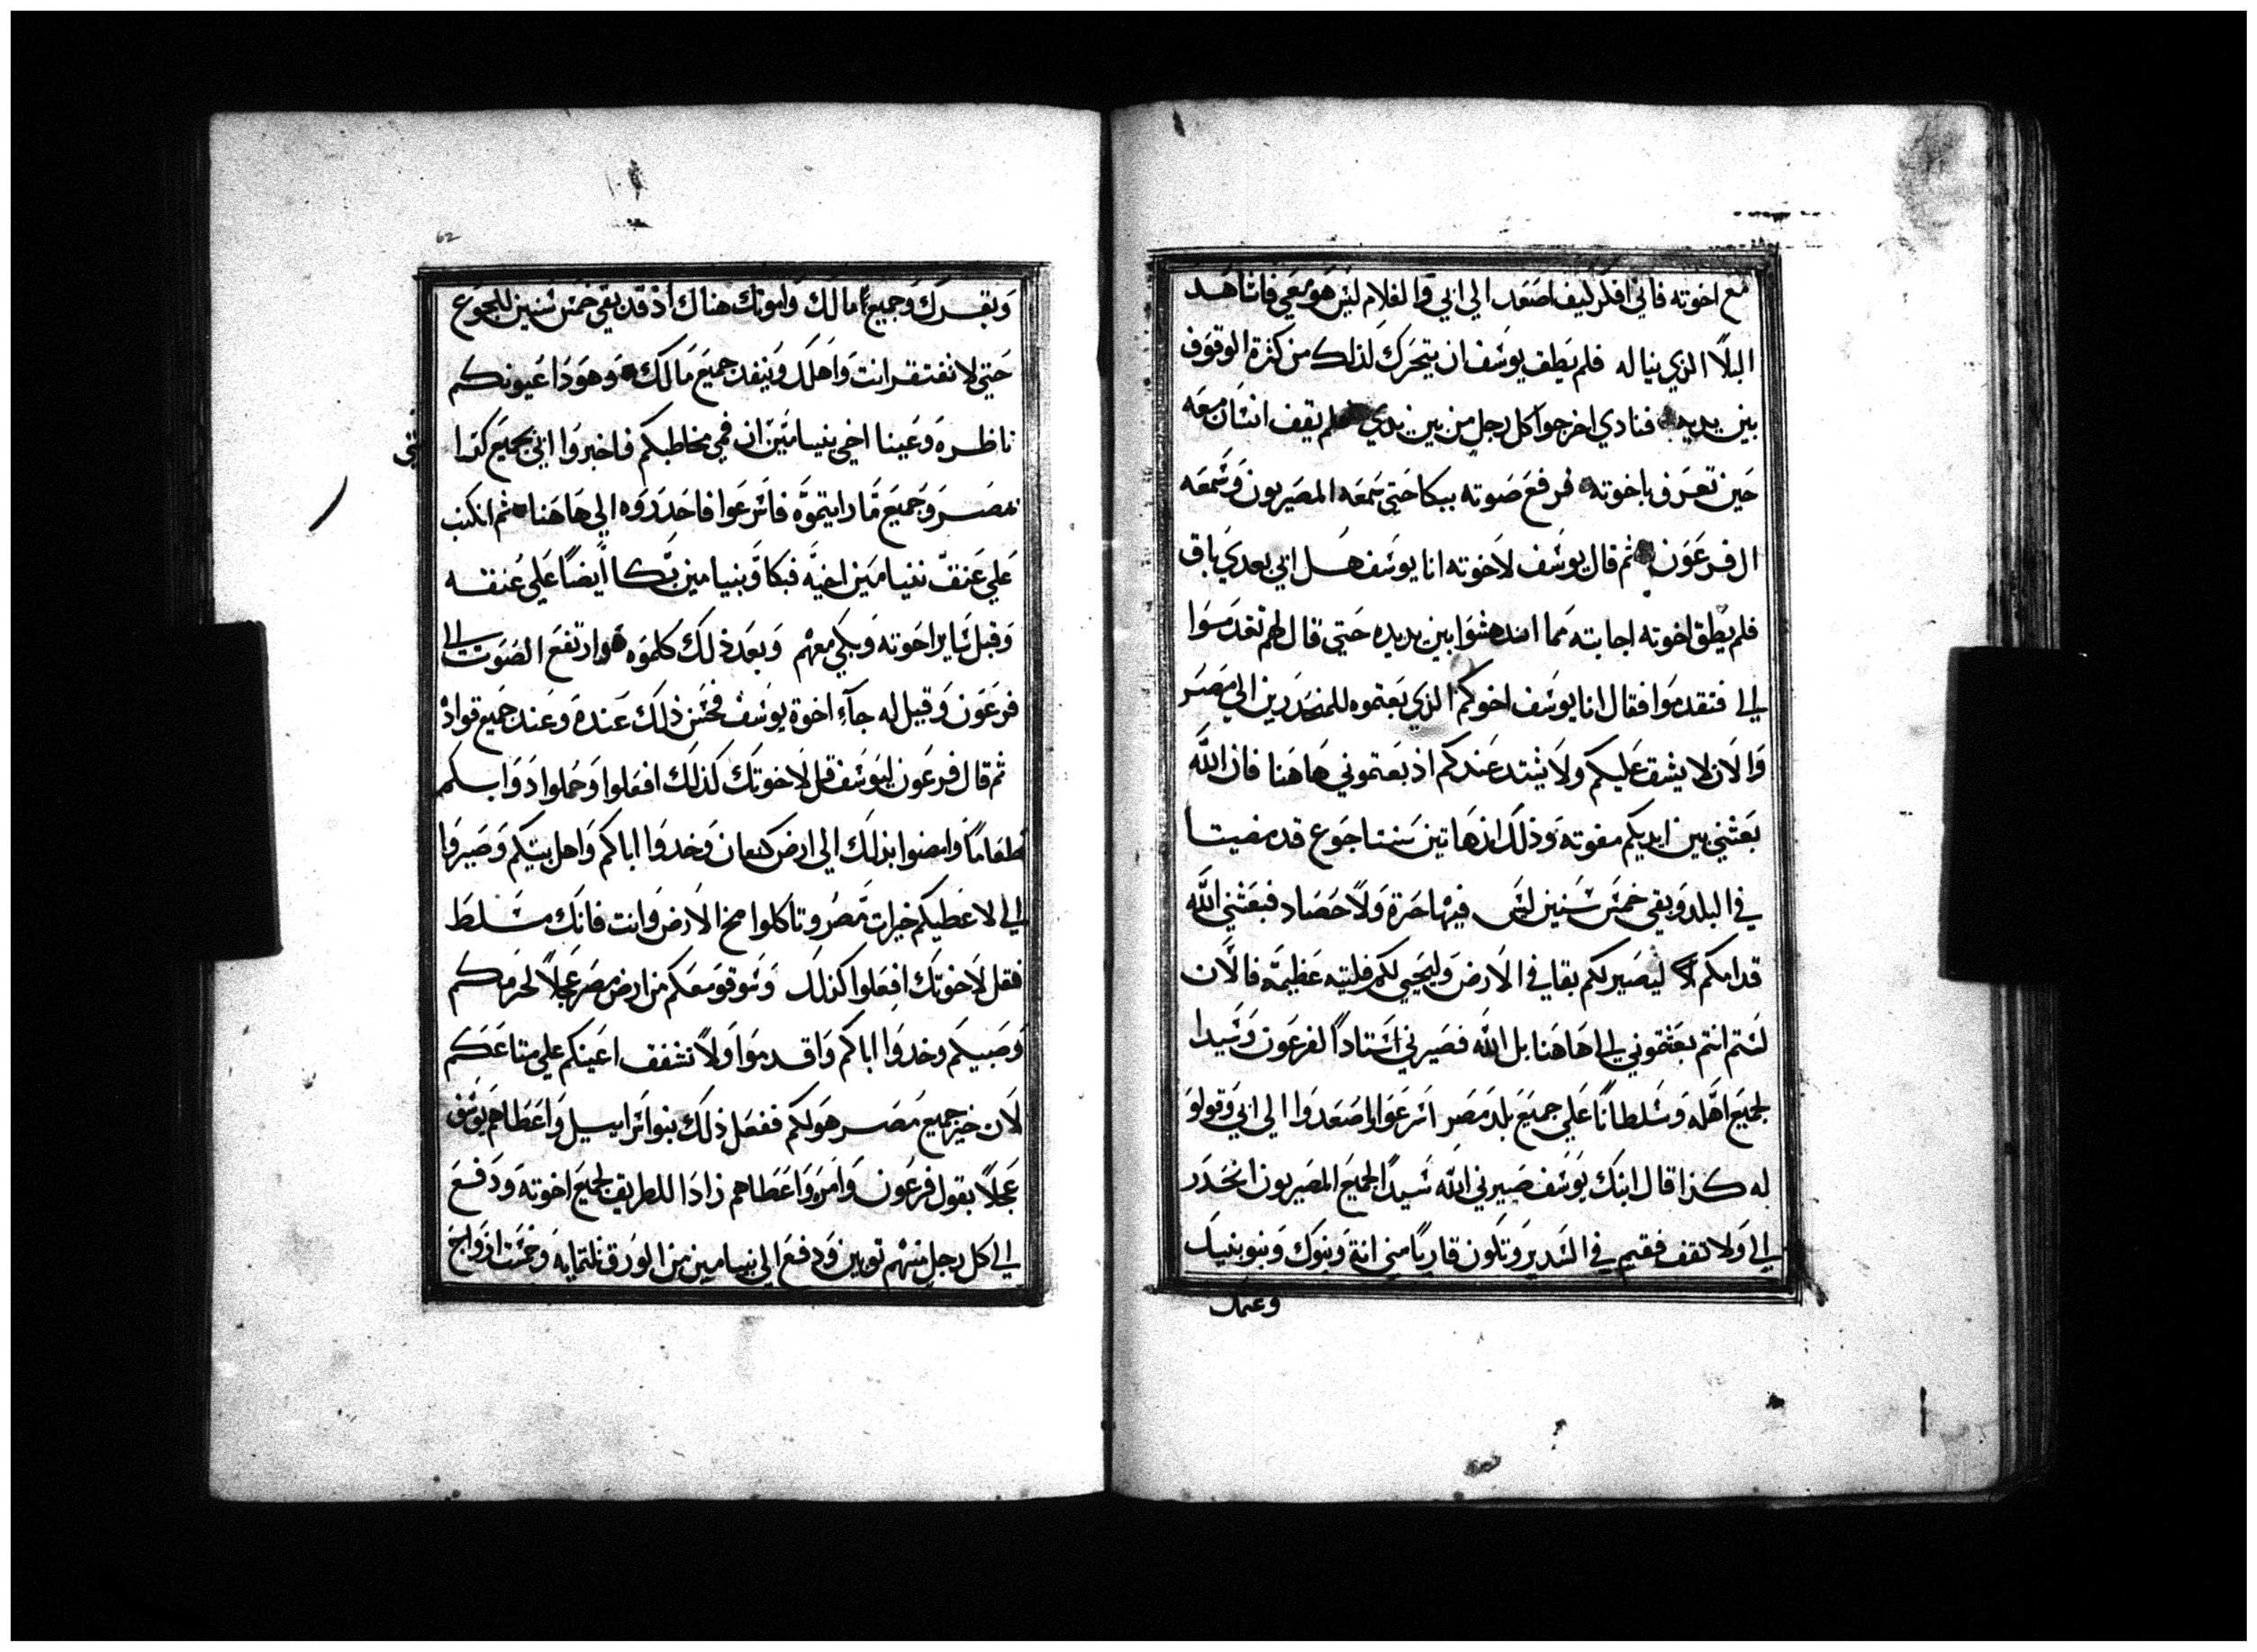 مع اخوته فاني افكر كيف اصعد الي ابي والغلام ليس هو معي فاشاهد
البلا الذي يناله فلم يطف يوسف ان يتحرك لذلك من كثرة الوقوف
بين يديه فنادي اخرجوا كل رجل من بين يدي فلم يقف انسان معه
حين تعرف باخوته فرفع صوته ببكا حتي سمعه المصريون وسمعه
ال فرعون ثم قال يوسف لاخوته انا يوسف هل ابي بعدي باق
فلم يطق اخوته اجابته مما اندهشوا بين يديه حتي قال لهم تقدموا
الي فتقدموا فقال انا يوسف اخوكم الذي بعتموه للمنحدرين الي مصر
والان لا يشق عليكم ولا يشتد عندكم اذ بعتموني هاهنا فان الله
بعثني بين ايديكم مغوته وذلك ان هاتين سنتا جوع قد مضيتا
في البلد وبقي خمس سنين ليس فيها حرة ولا حصاد فبعثني الله
قدامكم ليصير لكم بقا في الارض وليحيي لكم فليته عظيمة فالان
لستم انتم بعثتموني الي هاهنا بل الله فصيرني استاداً لفرعون وسيدا
لجميع اهله وسلطاناً علي جميع بلد مصر اسرعوا اصعدوا الي ابي وقولو
له كذا قال ابنك يوسف صيرني الله سيداً لجميع المصريون انحدر
الي ولا تقف فقيم في السدير وتكون قاريباً مني انت وبنوك وبنو بنيك
وغنمك
62
وبقرك وجميع مالك وامونك هناك اذ قد بقي خمس سنين للجوع
حتي لا تفتقر انت واهلك وينفد جميع مالك وهودا عيونكم
ناظره وعينا اخي بنيامين ان فمي مخاطبكم فاخبروا ابي بجميع كرا
متي
بمصر وجميع ما رايتموه فاسرعوا فاحدروه الي هاهنا ثم انكب
علي عنق بنيامين اخيه فبكا وبنيامين بكا ايضاً علي عنقه
وقبل ساير اخوته وبكي معهم وبعد ذلك كلموه وارتفع الصوت الي
فرعون وقيل له جآء اخوة يوسف فحسن ذلك عندة وعند جميع قواده
ثم قال فرعون ليوسف قل لاخوتك كذلك افعلوا وحملوا دوابكم
طعاماً وامضوا بذلك الي ارض كنعان وخدوا اباكم واهل بيتكم وصيروا
الي لاعطيكم خيرات مصر وتاكلوا مخ الارض وانت فانك مسلط
فقل لاخوتك افعلوا كذلك وسوقو معكم من ارض مصر عجلاً لحرمكم
وصبيكم وخدوا اباكم واقدموا ولا تشفق اعينكم علي متاعكم
لان خير جميع مصر هو لكم ففعل ذلك بنو اسراييل واعطاهم يوسف
عجلاً بقول فرعون وامره واعطاهم زادا للطريق لجميع اخوته ودفع
الي كل رجل منهم توبين ودفع الي بنيامين من الورق تلتمايه وخمست ازواج